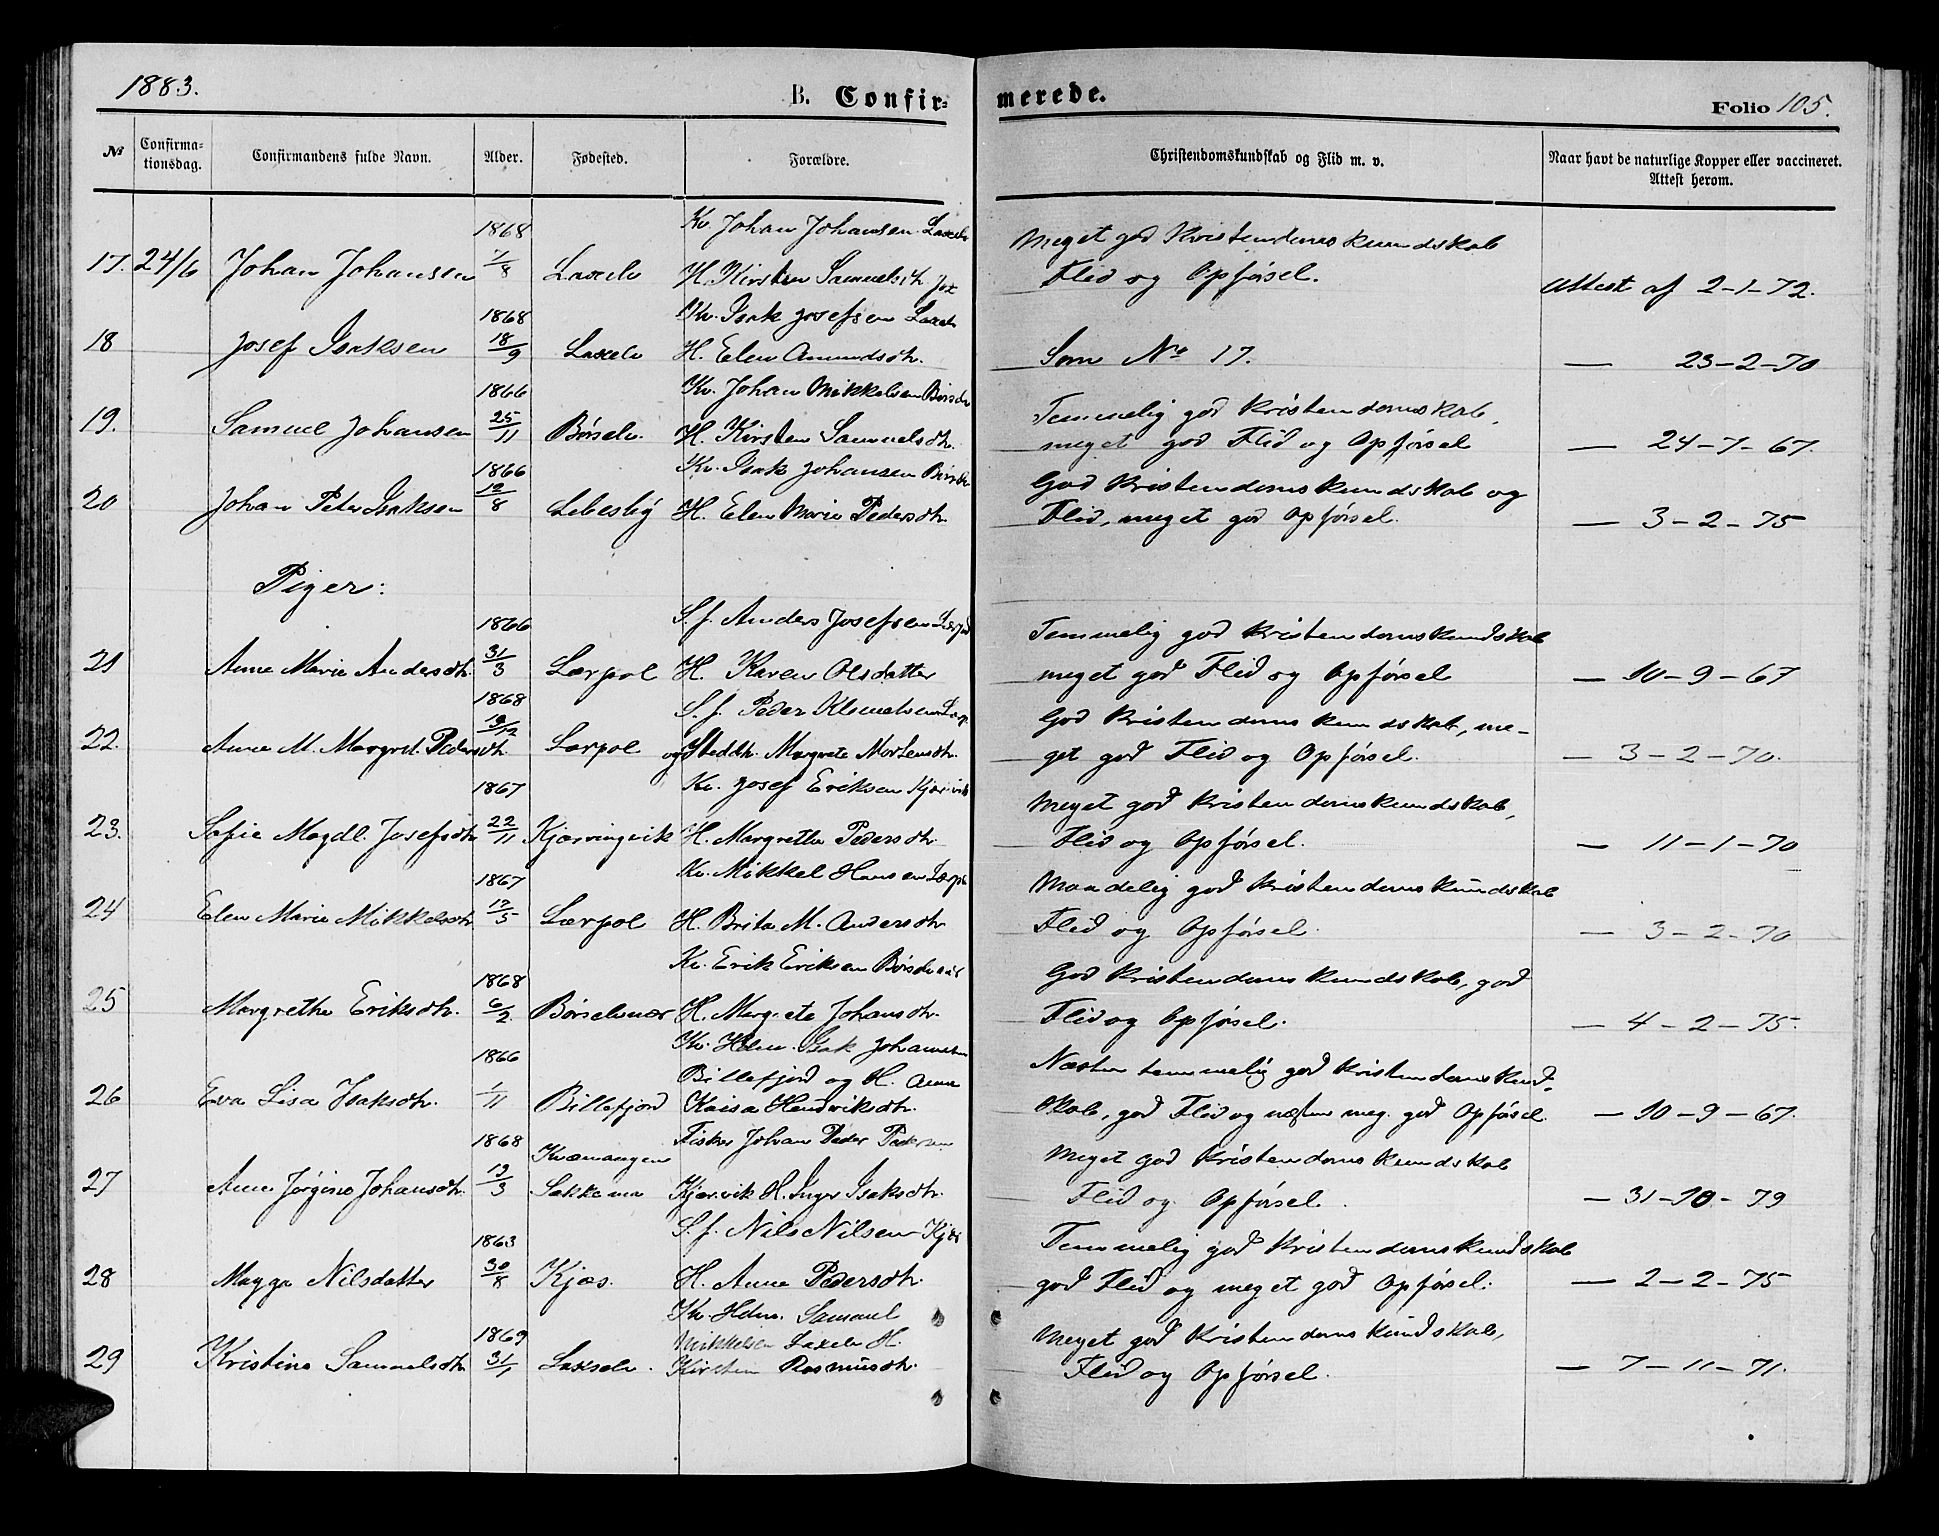 1883.
B. Confirmerede.
Folio 105.
№ Confirmationsdag. Confirmandens fulde Navn. Alder. Fødested. Forældre. Christendomskundskab og Flid m. v. Naar havt de naturlige Kopper eller vaccineret. Attest herom.
1868 Kv. Johan Johansen Laxelv Meget god Kristendomskundskab
17. 24/6 Johan Johansen 7/8 Laxelv H. Kirsten Samuelsdtr. Flid og Opførsel. Attest af 2-1-72.
1868 Kv. Isak Josefsen Laxelv
18 Josef Isaksen 18/9 Laxelv H. Elen Amundsdtr. Som No 17. — 23-2-70
1866 Kv. Johan Mikkelsen Børselv Temmelig god Kristendomskab,
19. Samuel Johansen 25/11 Børselv. H. Kirsten Samuelsdtr. meget god Flid og Opførsel — 24-7-67.
1866 Kv. Isak Johansen Børselv God Kristendomskundskab og
20 Johan Peter Isaksen 12/8 Lebesby H. Elen Marie Pedersdtr. Flid, meget god Opførsel. — 3-2-75
Piger:
1866 S.f. Anders Josefsen Temmelig god Kristendomskundskab
21 Anne Marie Andersdtr. 31/3 Lærpol H. Karen Olsdatter meget god Flid og Opførsel — 10-9-67
1868 S.f. Peder Klemetsen Lærp. God Kristendomskundskab, me-
22. Anne M. Margret. Pedersdtr. 19/12 Lærpol og Steddtr. Margrete Mortensdtr. get god Flid og Opførsel. — 3-2-70.
1867 Kv. Josef Eriksen Kjærvik Meget god Kristendomskundskab,
23. Sofie Magdl. Josefsdtr. 22/11 Kjærvingvik H. Margrethe Pedersdtr. Flid og Opførsel. — 11-1-70
1867 Kv. Mikkel Hansen Lærpol Maadelig god Kristendomskundskab
24 Elen Marie Mikkelsdtr. 12/5 Lærpol H. Brita M. Andersdtr. Flid og Opførsel. — 3-2-70
1868 Kv. Erik Eriksen Børselvnær God Kristendomskundskab, god
25 Margrethe Eriksdtr. 6/2 Børselvnær H. Margrete Johansdtr. Flid og Opførsel. — 4-2-75.
1866 Kv. Hdm. Isak Johannesen Næsten temmelig god Kristendomskund-
Billefjord og H. Anne
26 Eva Lisa Isaksdtr. 1/11 Billefjord Kaisa Hendriksdtr. skab, god Flid og næsten meg. god Opførsel. — 10-9-67.
1868 Kvænangen Fisker Johan Peder Pedersen Meget god Kristendomskundskab
27 Anne Jørgine Johansdtr. 12/3 Sakkema Kjærvik H. Inger Isaksdtr. Flid og Opførsel. — 31-10-79
1863 S.f. Nils Nilsen Kjæs Temmelig god Kristendomskundskab
28 Magga Nilsdatter 30/8 Kjæs. H. Anne Pedersdtr. god Flid og meget god Opførsel. — 2-2-75
Kv. Hdm. Samuel
1869 Mikkelsen Laxelv H. Meget god Kristendomskundskab,
29 Kristine Samuelsdtr. 31/1 Lakselv. Kirsten Rasmusdtr. Flid og Opførsel. — 7-11-71.